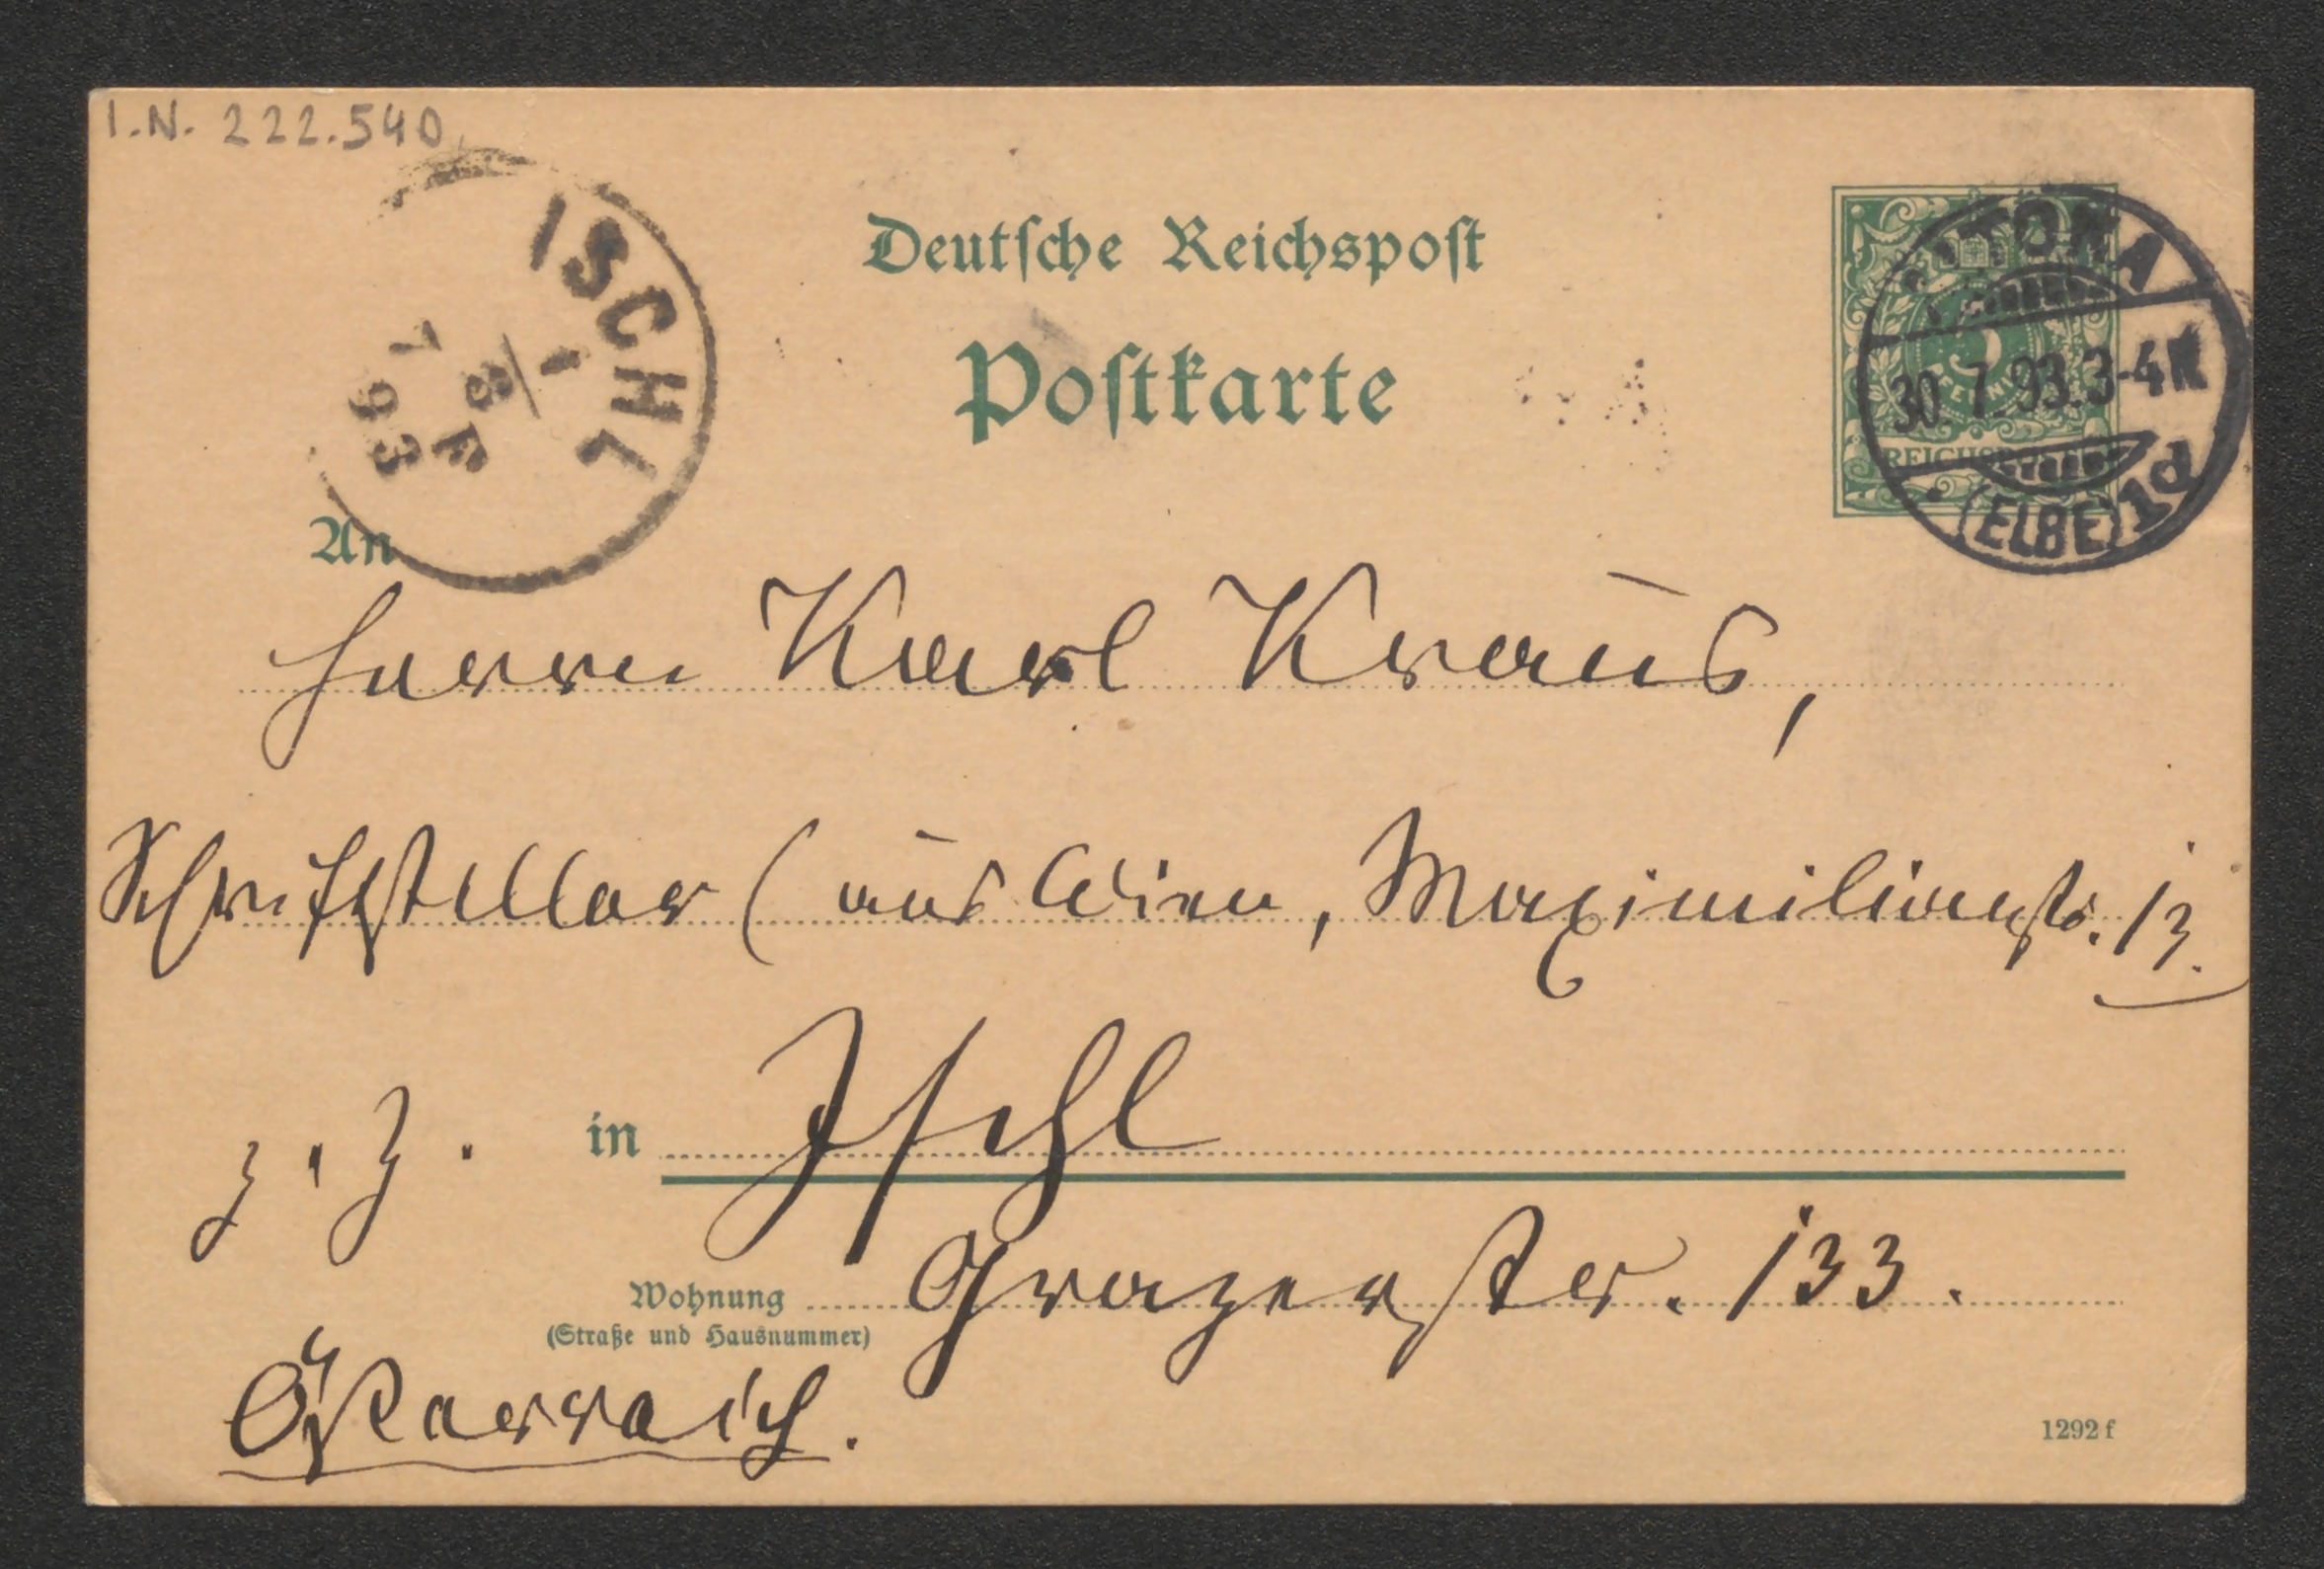 I.N. 222.540
ISCHL
1
8 F
7 93
Deutsche Reichspost
Postkarte
ALTONA
30. 7. 93. 3-4 N
(ELBE) 1d
REICHSPOST
An
Herrn Karl Kraus,
Schriftsteller (aus Wien, Maximilianstr. 13
z. Z. in Ischl
Wohnung Grazerstr. 133.
(Straße und Hausnummer)
Österreich.
1292 f